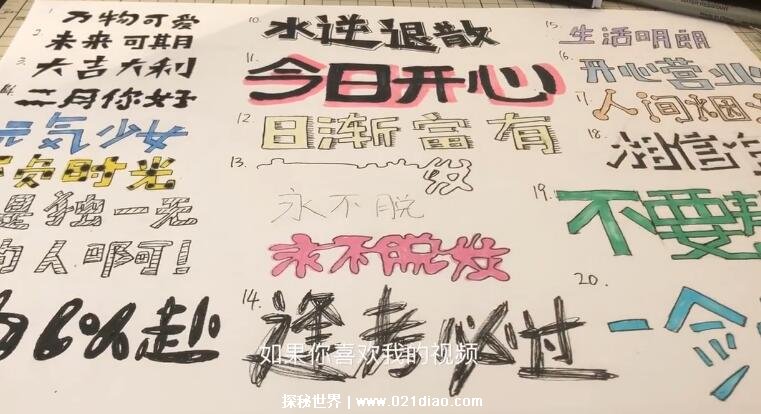 1. 万物可爱
2. 未来可其月
3. 大吉大利
4. 二月你好
负时光
是独一无
的人啊可!
10. 水逆退散
11. 今日开心
12. 日渐富有
13.
永不脱
永不脱发
14. 逢考必过
15. 生活明朗
16. 开心营业
17. 人间烟
18.
19. 不要
20.
如果你喜欢我的视频
探秘世界|www.021diao.com